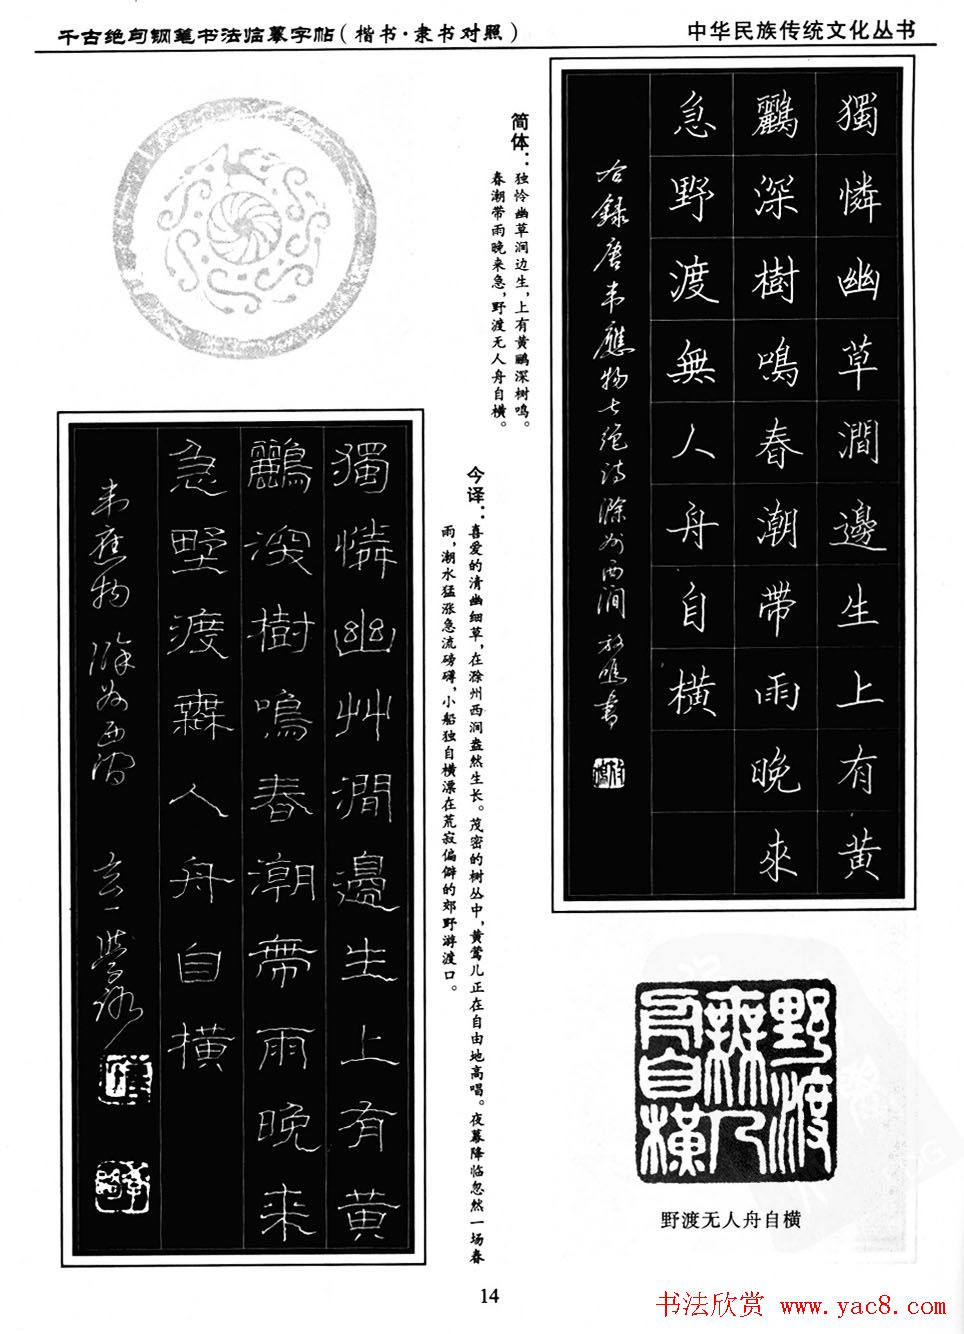 千古绝句钢笔书法临摹字帖（楷书·隶书对照）
中华民族传统文化丛书
獨憐幽草澗邊生上有黄
鸝深樹鳴春潮帶雨晚來
急野渡無人舟自橫
右錄唐韦應物七絕诗滁州西澗
简体：独怜幽草涧边生，上有黄鹂深树鸣。
春潮带雨晚来急，野渡无人舟自横。
獨憐幽艸澗邊生上有黄
鸝深樹鳴春潮帶雨晚来
急野渡無人舟自橫
韦應物 滁州西澗
今译：喜爱的清幽细草，在滁州西涧盎然生长。茂密的树丛中，黄莺儿正在自由地高唱。夜幕降临忽然一场春
雨，潮水猛涨急流磅礴，小船独自横漂在荒寂偏僻的郊野游渡口。
野渡
無人
舟自橫
野渡无人舟自横
14
书法欣赏 www.yac8.com